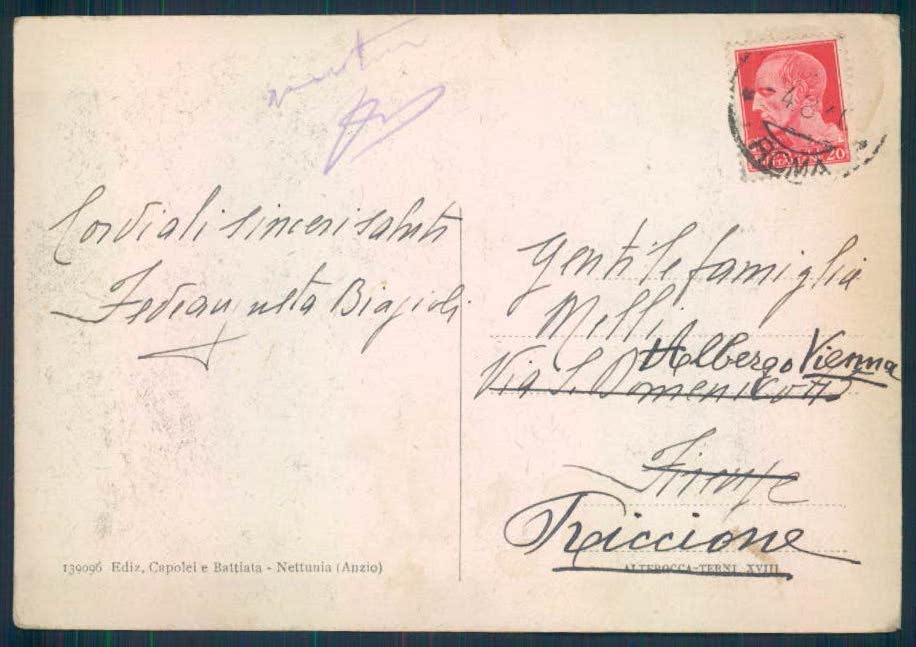 Cordiali sinceri saluti
Biagioli
ROMA
20
Gentile famiglia
Melli
Albergo Vienna
Via S. Domenico
Firenze
Riccione
139096 Ediz. Capolei e Battiata - Nettunia (Anzio)
ALTEROCCA-TERNI XVIII